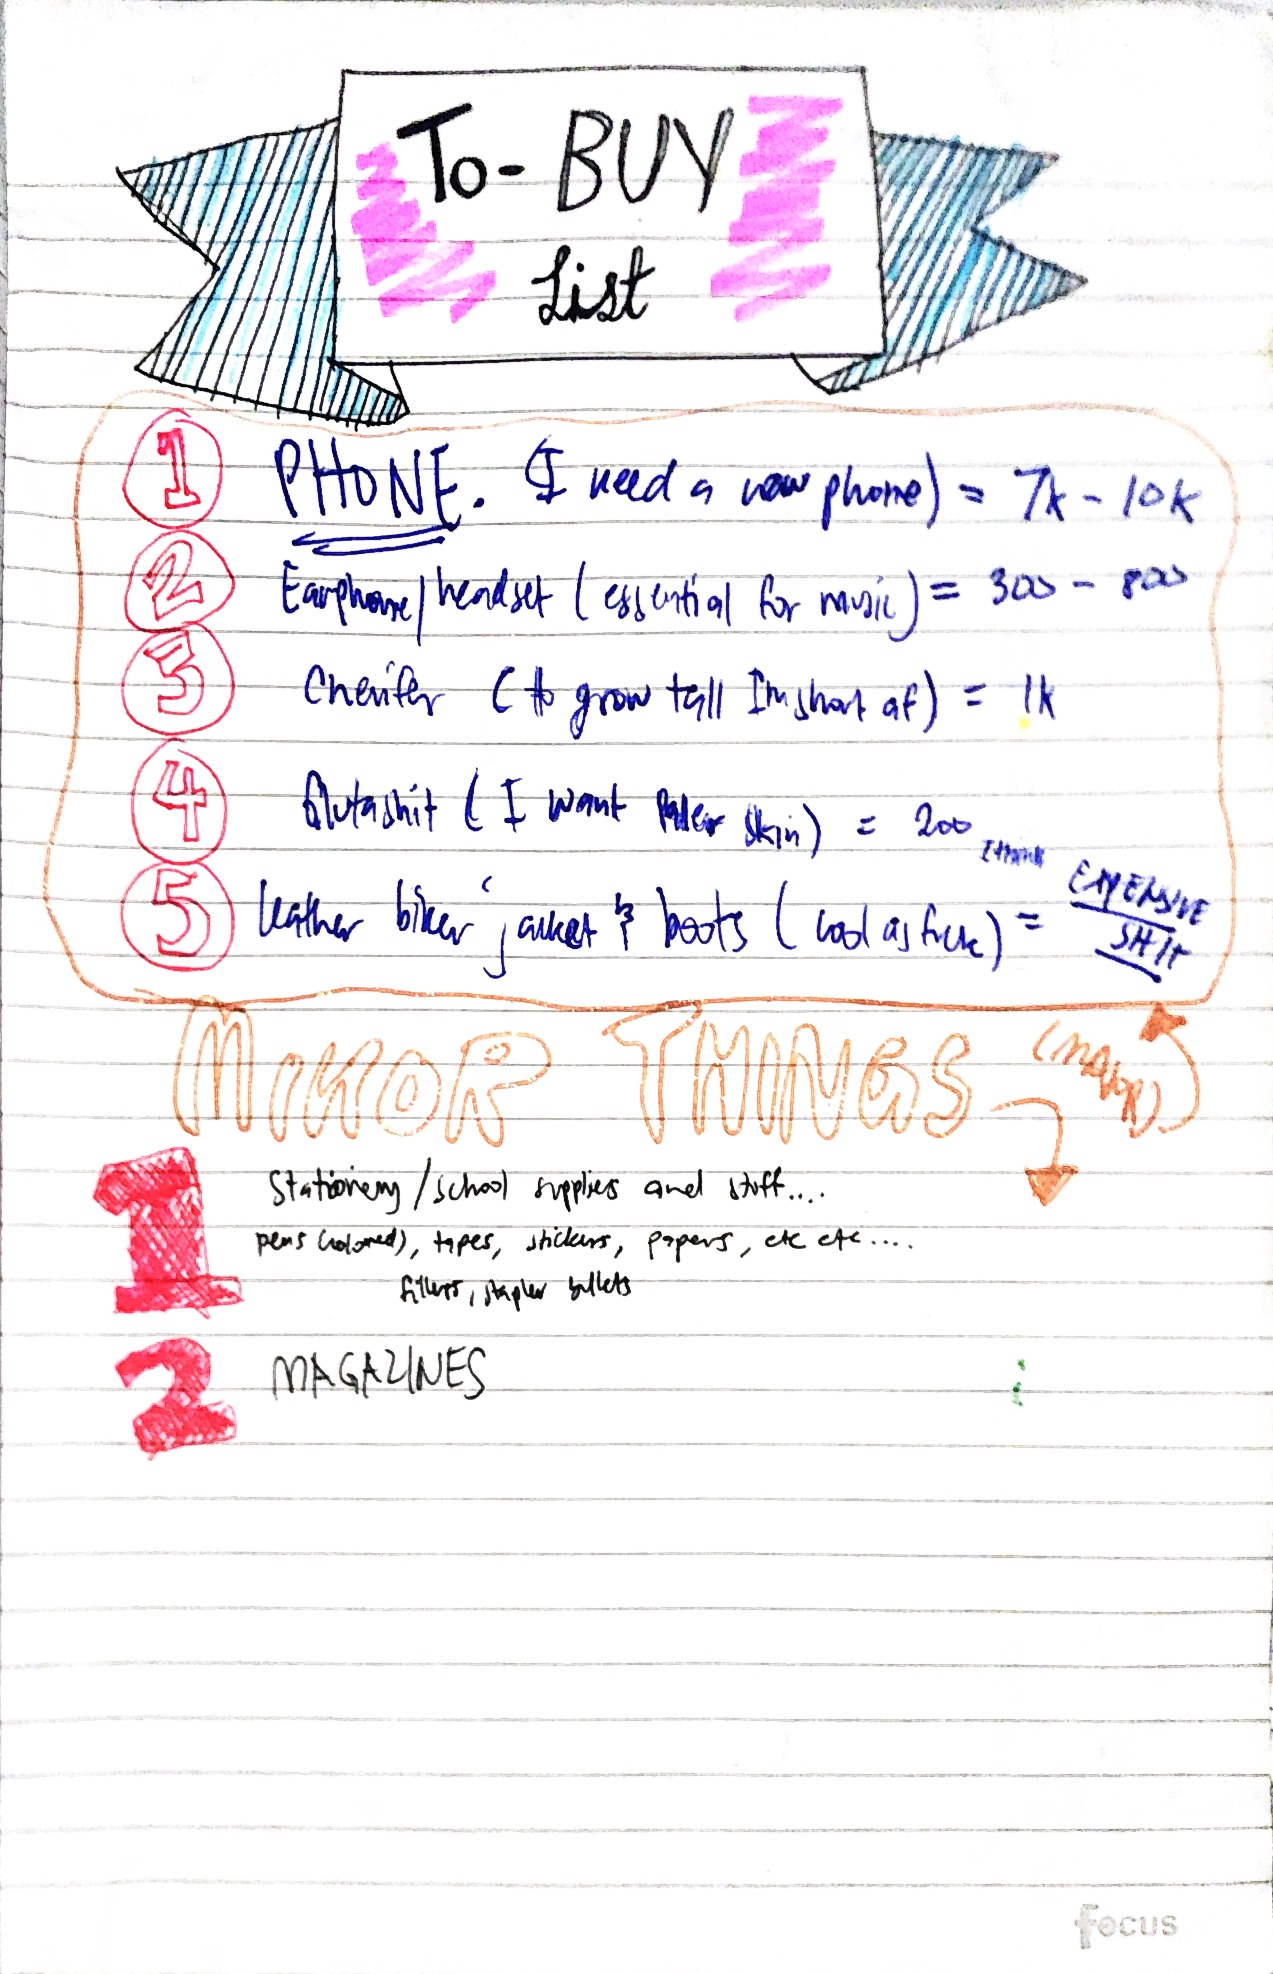 To-BUY
List
1 PHONE. (I need a new phone) = 7k - 10k
2 Earphone/headset (essential for music) = 300 - 800
3 Cherifer (to grow tall Im short af) = 1k
4 Glutashit (I want Paler skin) = 200 I think
5 leather biker jacket & boots (cool as fuck) = EXPENSIVE
SHIT
MINOR THINGS (major)
1 Stationery/school supplies and stuff....
pens (colored), tapes, stickers, papers, etc etc....
fillers, stapler bullets
2 MAGAZINES
Focus